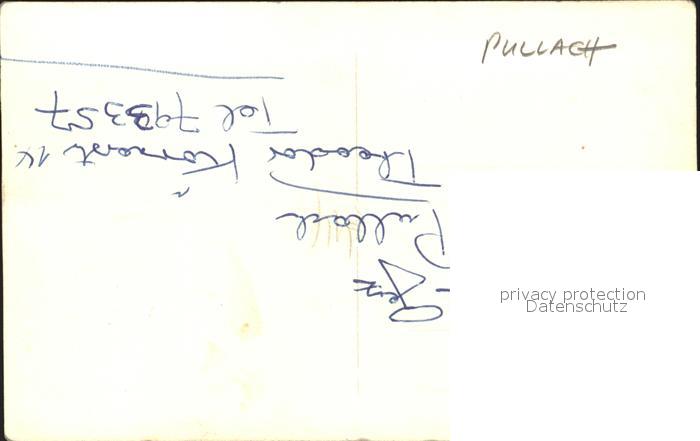 PULLACH
Pullach
Theodor Körnerstr. 14
Tel 793357
privacy protection
Datenschutz